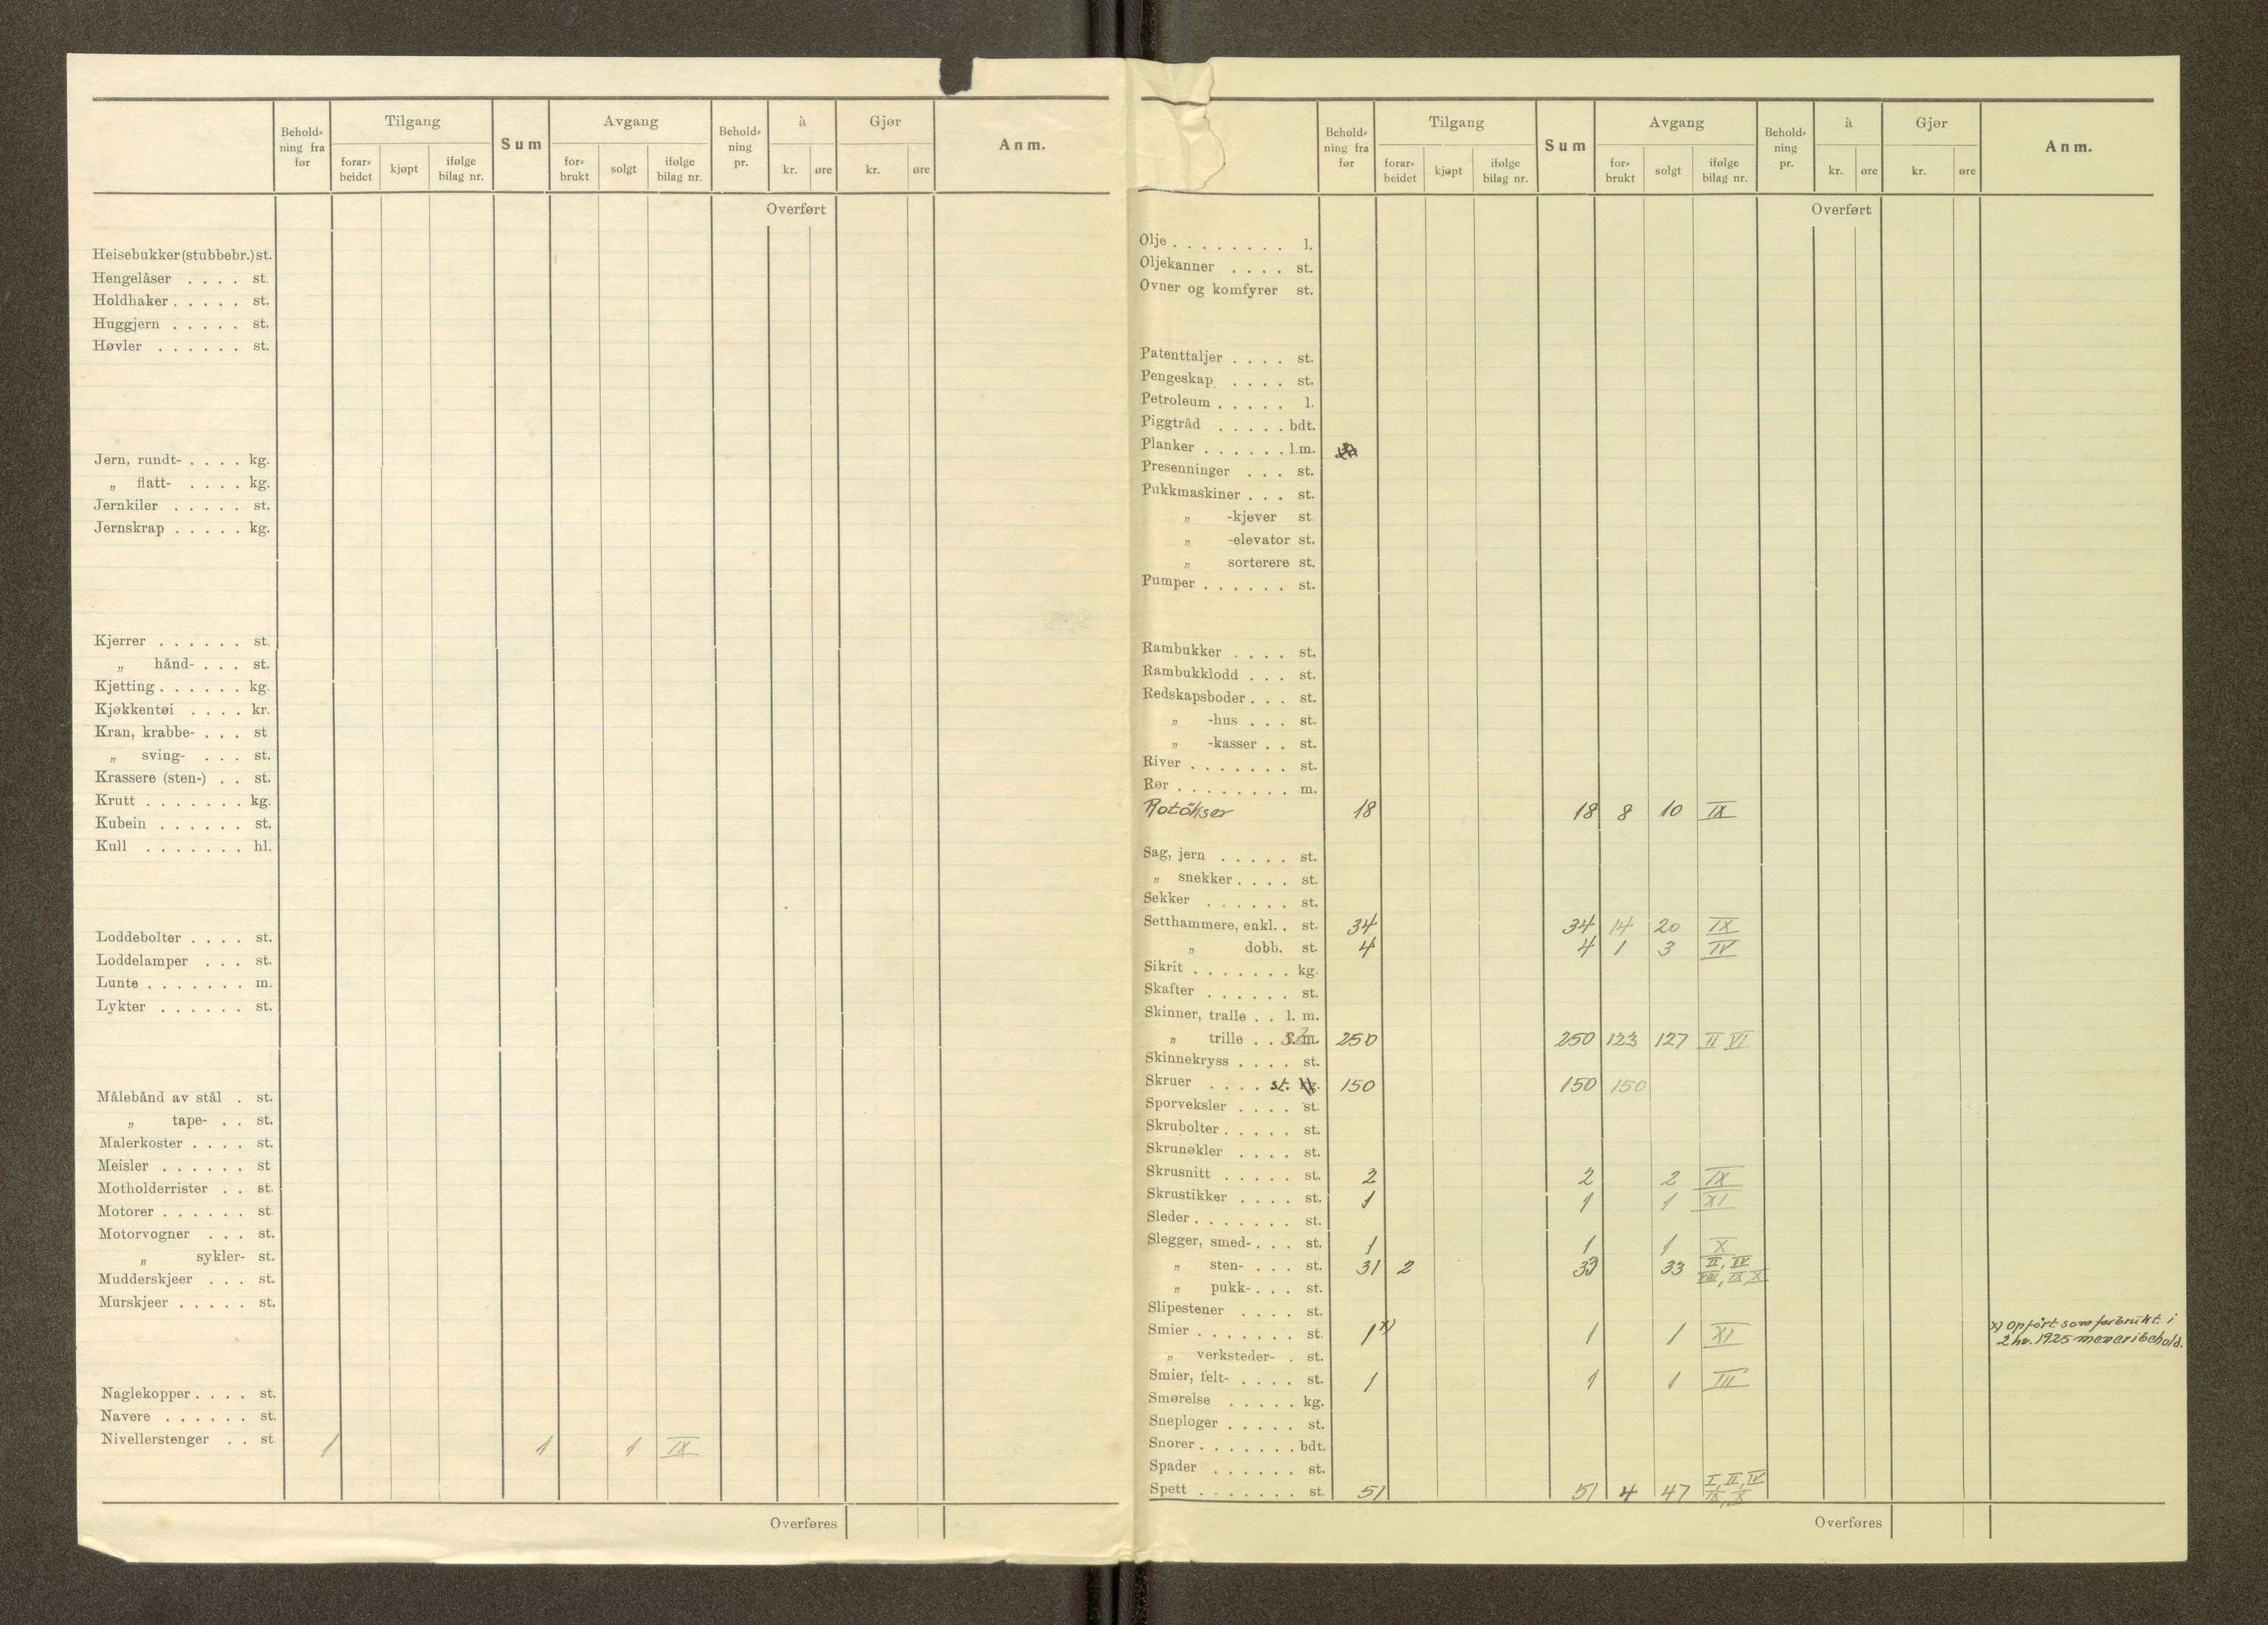 Behold- ning fra før | Tilgang | Sum | Avgang | Behold- ning pr. | à | Gjør | Anm.
forar- beidet | kjøpt | ifølge bilag nr. | for- brukt | solgt | ifølge bilag nr. | kr. | øre | kr. | øre
Overført
Heisebukker (stubbebr.) st.
Hengelåser . . . . st.
Holdhaker . . . . . st.
Huggjern . . . . . st.
Høvler . . . . . . st.
Jern, rundt- . . . . kg.
„ flatt- . . . . kg.
Jernkiler . . . . . st.
Jernskrap . . . . . kg.
Kjerrer . . . . . . st.
„ hånd- . . . st.
Kjetting . . . . . . kg.
Kjøkkentøi . . . . kr.
Kran, krabbe- . . . st
„ sving- . . . st.
Krassere (sten-) . . st.
Krutt . . . . . . . kg.
Kubein . . . . . . st.
Kull . . . . . . . hl.
Loddebolter . . . . st.
Loddelamper . . . st.
Lunte . . . . . . . m.
Lykter . . . . . . st.
Målebånd av stål . st.
„ tape- . . st.
Malerkoster . . . . st.
Meisler . . . . . . st
Motholderrister . . st.
Motorer . . . . . . st.
Motorvogner . . . st.
„ sykler- st.
Mudderskjeer . . . st.
Murskjeer . . . . . st.
Naglekopper . . . . st.
Navere . . . . . . st.
Nivellerstenger . . st 1 1 1 IX
Overføres
Behold- ning fra før | Tilgang | Sum | Avgang | Behold- ning pr. | à | Gjør | Anm.
forar- beidet | kjøpt | ifølge bilag nr. | for- brukt | solgt | ifølge bilag nr. | kr. | øre | kr. | øre
Overført
Olje . . . . . . . . l.
Oljekanner . . . . st.
Ovner og komfyrer st.
Patenttaljer . . . . st.
Pengeskap . . . . st.
Petroleum . . . . . l.
Piggtråd . . . . . bdt.
Planker . . . . . . l.m.
Presenninger . . . st.
Pukkmaskiner . . . st.
„ -kjever st.
„ -elevator st.
„ sorterere st.
Pumper . . . . . . st.
Rambukker . . . . st.
Rambukklodd . . . st.
Redskapsboder . . . st.
„ -hus . . . st.
„ -kasser . . st.
River . . . . . . . st.
Rør . . . . . . . . m.
Rotökser 18 18 8 10 IX
Sag, jern . . . . . st.
„ snekker . . . . st.
Sekker . . . . . . st.
Setthammere, enkl. . st. 34 34 14 20 IX
„ dobb. st. 4 4 1 3 IV
Sikrit . . . . . . . kg.
Skafter . . . . . . st.
Skinner, tralle . . l. m.
„ trille . . l. m. 250 250 123 127 II VI
Skinnekryss . . . . st.
Skruer . . . . st. kg. 150 150 150
Sporveksler . . . . st.
Skrubolter . . . . . st.
Skrunøkler . . . . st.
Skrusnitt . . . . . st. 2 2 2 IX
Skrustikker . . . . st. 1 1 1 XI
Sleder . . . . . . . st.
Slegger, smed- . . . st. 1 1 1 X
„ sten- . . . st. 31 2 33 33 II, IV VIII, IX X
„ pukk- . . . st.
Slipestener . . . . st.
Smier . . . . . . . st. 1 x) 1 1 XI x) Opført som forbrukt i
2 hv. 1925 men er i behold.
„ verksteder- . st.
Smier, felt- . . . . st. 1 1 1 III
Smørelse . . . . . kg.
Sneploger . . . . . st.
Snorer . . . . . . . bdt.
Spader . . . . . . st.
Spett . . . . . . . st. 51 51 4 47 I, II, IV IX, X
Overføres